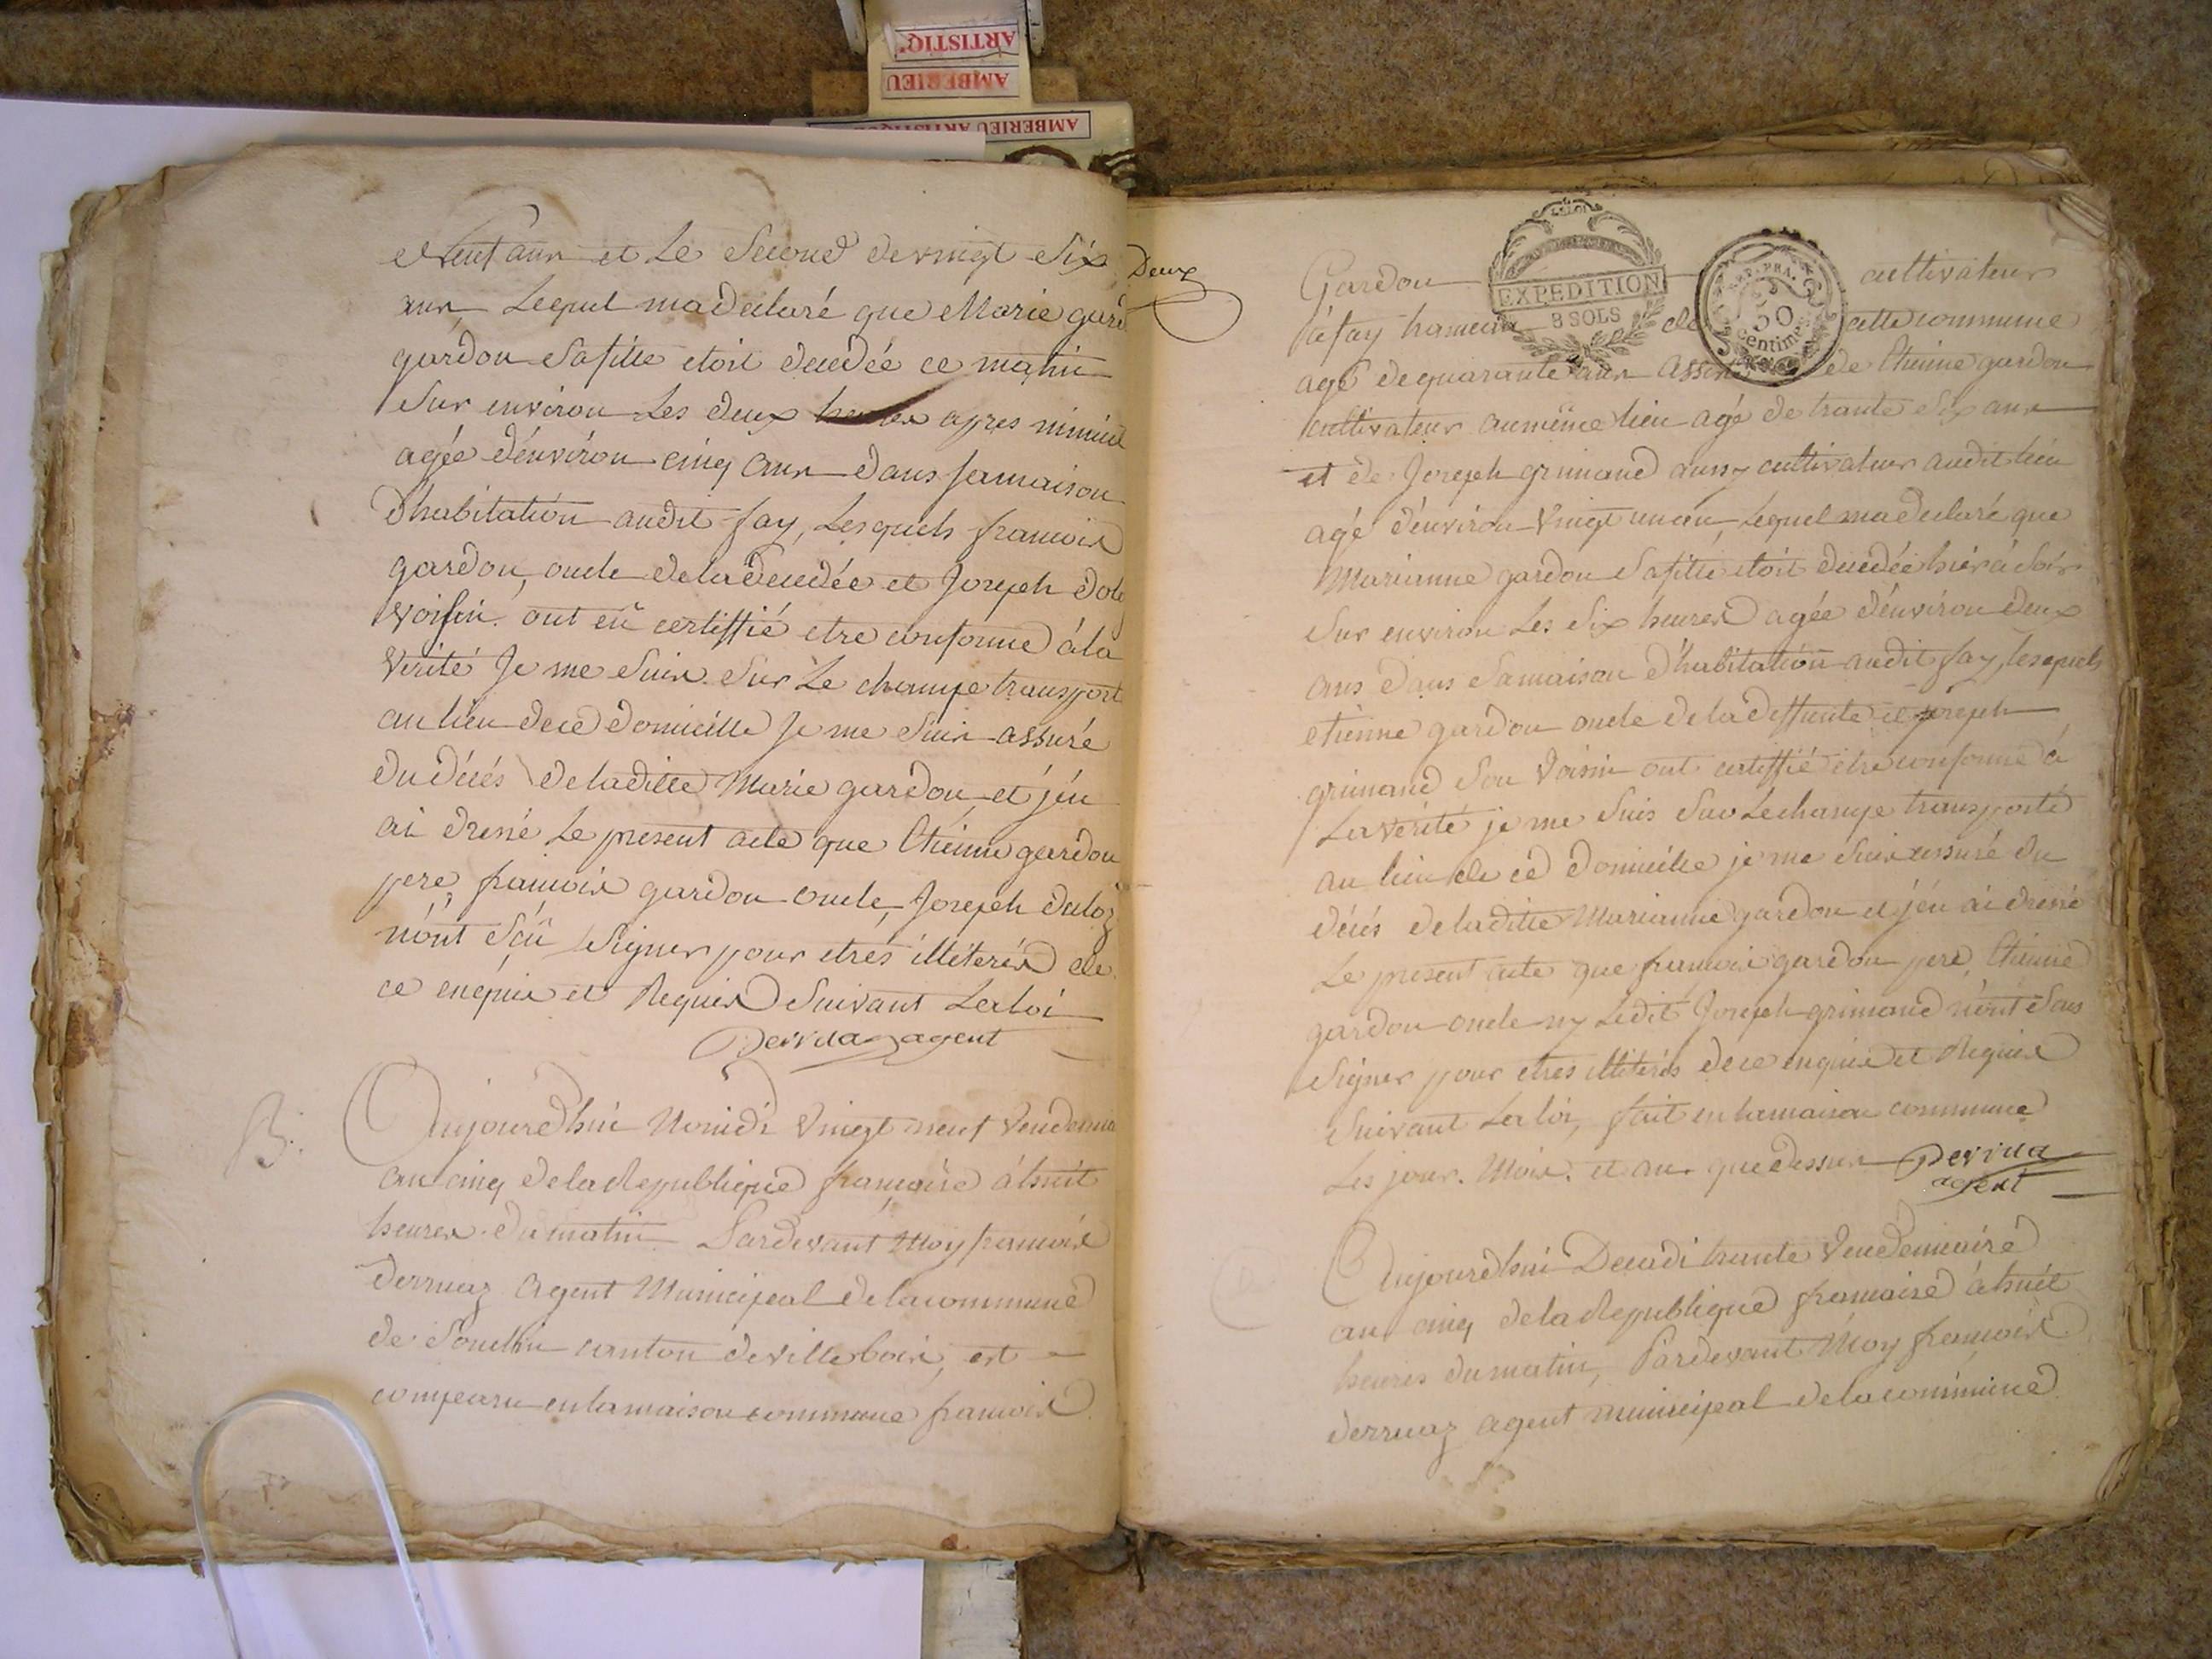 ARTISTIQ
AMBERIEU
AMBERIEU ARTISTIQUE
et neuf ans et le second de vingt six
ans, Lequel ma declaré que Marie gard
gardon sa fille etoit decedée ce matin
sur environ les deux heures apres minuit
agée d'environ cinq ans dans sa maison
d'habitation audit fay, Lesquels francois
gardon, oncle de la decedée et Joseph dolo
voisin ont eû certiffié etre conforme à la
verité Je me suis sur Le champe transport
au lieu de ce domicille Je me suis assuré
du décés de laditte Marie gardon et j'en
ai dressé Le present acte que Etienne gardon
pere, francois gardon oncle, Joseph daloz
n'ont sçû signer pour etrés illiterés de
ce enquis et Requis suivant La loi
Derruaz agent
B.
Aujourd'hui Nonidi vingt neuf vendemia
an cinq de la Republique française à huit
heures du matin Pardevant Moy francois
derruaz Agent Municipal de la commune
de Souclin canton de villebois, est
comparu en la maison commune francois
Deux
Gardon cultivateur
à fay hameau de cette commune
EXPEDITION
8 SOLS
REP. FRA.
50
Centimes
agé de quarante ans assisté de Etienne gardon
cultivateur au même lieu agé de trante six ans
et de Joseph grimand aussy cultivateur audit lieu
agé d'environ vingt un an, Lequel ma declaré que
Marianne gardon sa fille etoit decedée hier à soir
sur environ Les six heures agée d'environ deux
ans dans sa maison d'habitation audit fay, lesquels
etienne gardon oncle de la deffunte et joseph
grimand son voisin ont certiffié etre conforme à
La verité je me suis sur Le champe transporté
au lieu de ce domicille je me suis assuré du
décés de laditte Marianne gardon et j'en ai dressé
Le present acte que francois gardon pere, Etienne
gardon oncle ny Ledit Joseph grimand n'ont sçus
signer pour etrés illiterés de ce enquis et Requis
suivant La loi, fait en la maison commune
Les jour. Mois. et an. que dessus Derruaz
agent
Aujourd'hui Decadi trante vendemiaire
an cinq de la Republique francaise à huit
heures du matin, Pardevant Moy francois
derruaz agent municipal de la commune